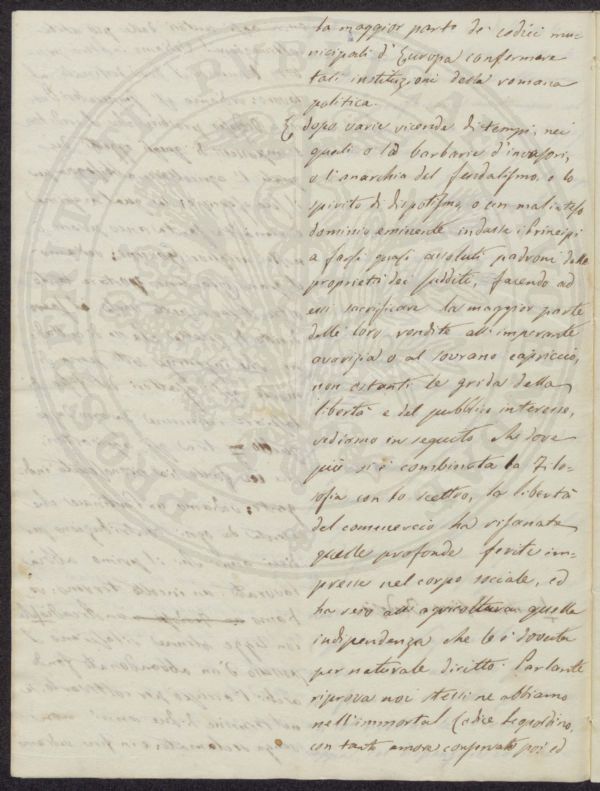 la maggior parte de' codici mu-
nicipali d'Europa confermare
tali instituzioni della romana
politica.
E dopo varie vicende di tempi, nei
quali o la barbarie d'invasori,
o l'anarchia del feudalismo, o lo
spirito di dispotismo, o un malinteso
dominio eminente indusse i Principi
a farsi quasi assoluti padroni delle
proprietà dei sudditi, facendo ad
essi sacrificare la maggior parte
delle loro rendite all'imperante
avarizia o al sovrano capriccio,
non ostanti le grida della
libertà e del pubblico interesse,
vediamo in seguito che dove
più si è combinata la Filo-
sofia con lo scettro, la libertà
del commercio ha risanate
quelle profonde ferite im-
presse nel corpo sociale, ed
ha reso all'agricoltura quella
indipendenza che le è dovuta
per naturale diritto. Parlante
riprova noi stessi ne abbiamo
nell'immortal Codice Leopoldino,
con tanto amore conservato poi ed